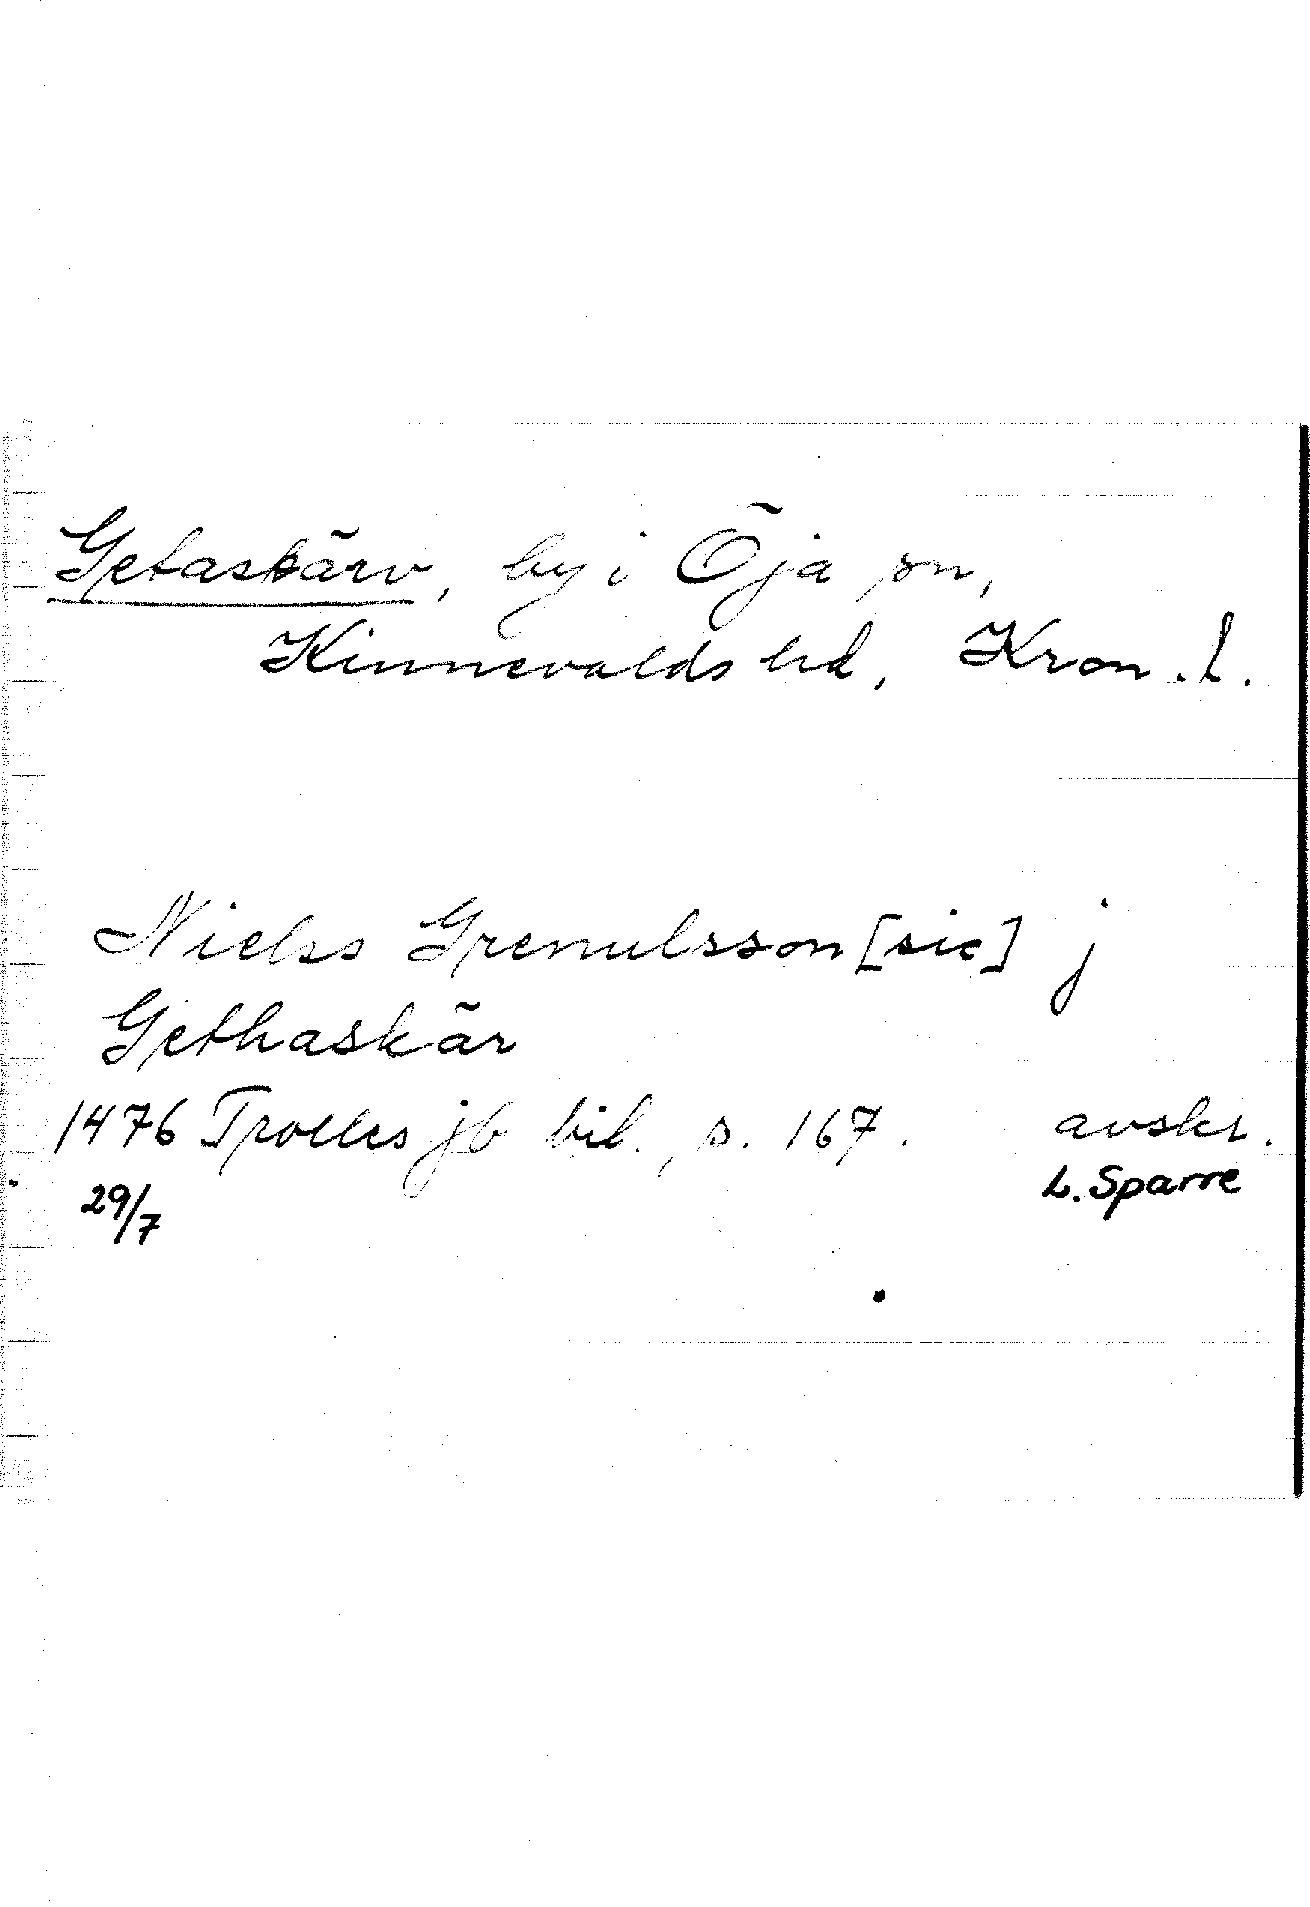 Getaskärv, by i Öja sn,
Kinnevalds hd, Kron. l.
Nielss Gremulsson [sic] j
Gethaskär
1476 Trolles jb bil., s. 167. avskr.
29/7 L. Sparre